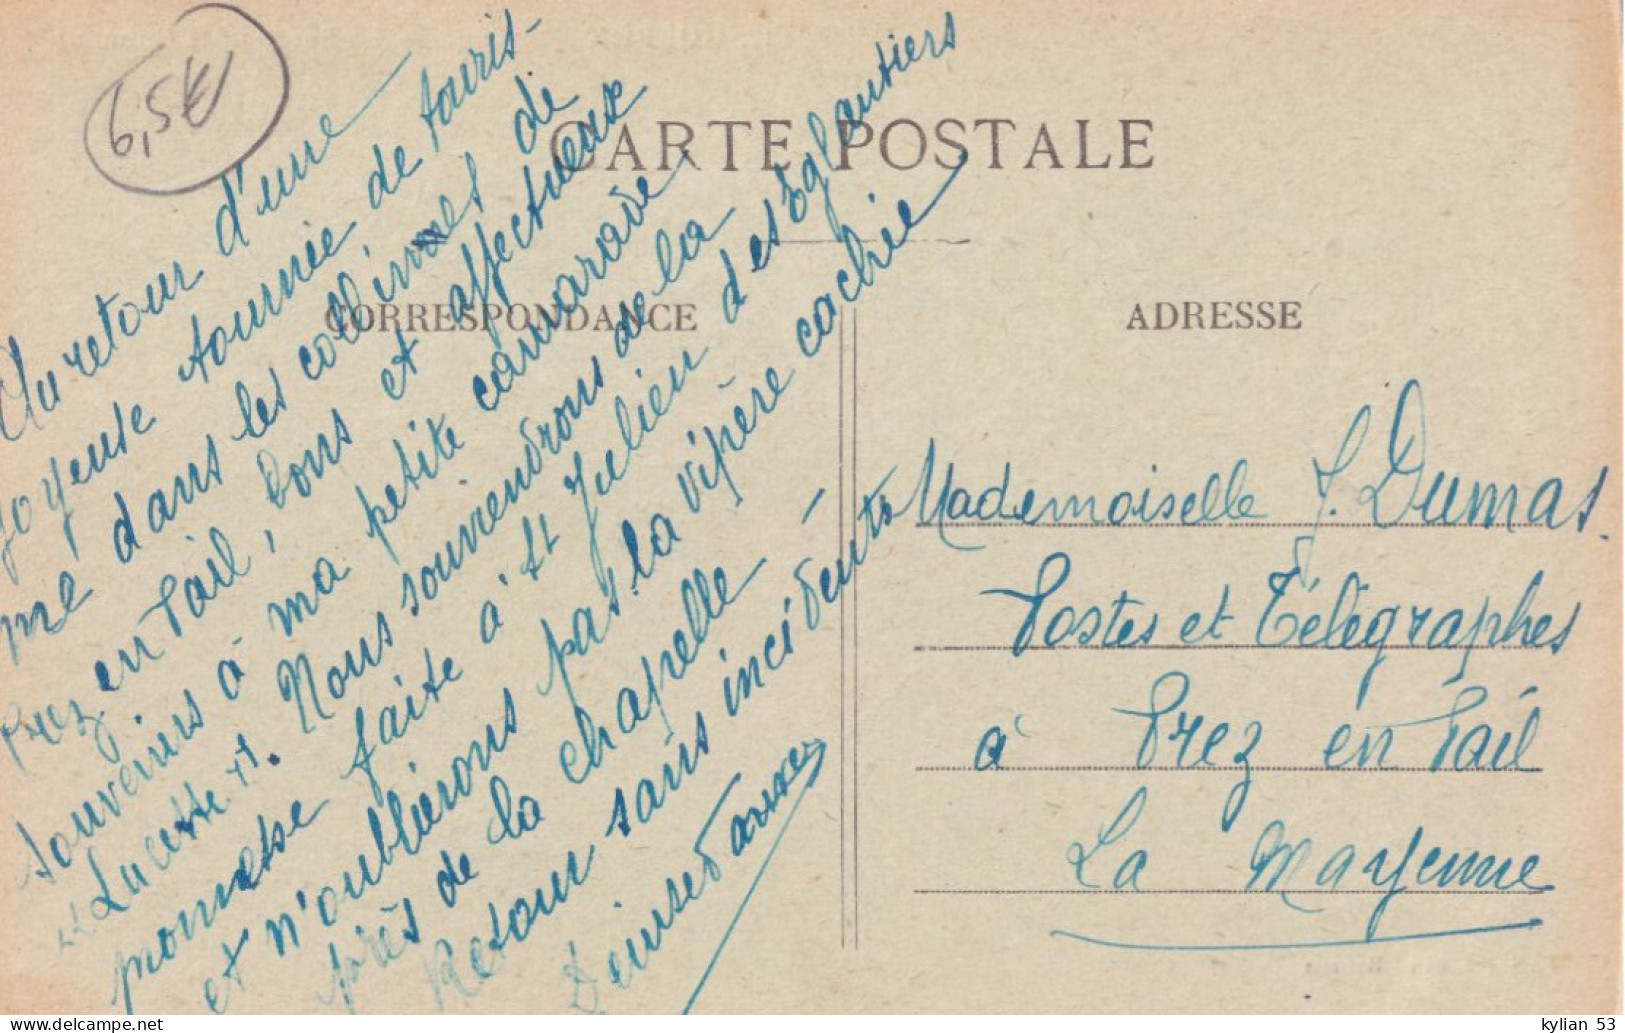 6,5€
CARTE POSTALE
CORRESPONDANCE
Au retour d'une
joyeuse tournée de touris-
me dans les collines de
Prez en Pail, bons et affectueux
souvenirs à ma petite camarade
"Lucette". Nous souviendrons de la
promesse faite à St Julien des Eglantiers
et n'oublierons pas la vipère cachée
près de la chapelle
Retour sans incidents
ADRESSE
Mademoiselle J. Dumas
Postes et Télégraphes
à Prez en Pail
La Mayenne
kylian 53